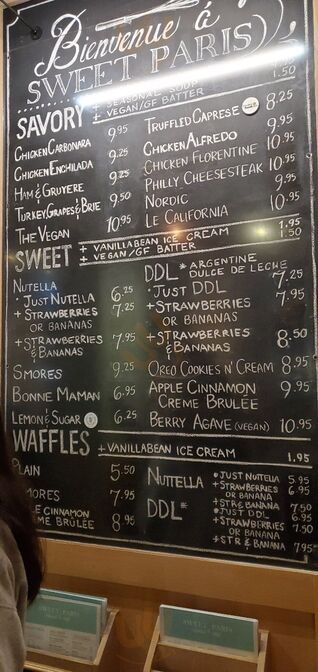 Bienvenue á
SWEET PARIS
SAVORY
+ SEASONAL SOUP
+ VEGAN/GF BATTER 1.50
CHICKEN CARBONARA 9.95
CHICKEN ENCHILADA 9.25
HAM & GRUYERE 9.25
TURKEY, GRAPES & BRIE 9.50
THE VEGAN 10.95
TRUFFLED CAPRESE 8.25
CHICKEN ALFREDO 9.95
CHICKEN FLORENTINE 10.95
PHILLY CHEESESTEAK 10.95
NORDIC 9.95
LE CALIFORNIA 10.95
SWEET
+ VANILLABEAN ICE CREAM 1.95
+ VEGAN/GF BATTER 1.50
NUTELLA
· JUST NUTELLA 6.25
+ STRAWBERRIES 7.25
OR BANANAS
+ STRAWBERRIES 7.95
& BANANAS
SMORES 9.25
BONNE MAMAN 6.95
LEMON & SUGAR 6.25
DDL * ARGENTINE
DULCE DE LECHE
· JUST DDL 7.25
+ STRAWBERRIES 7.95
OR BANANAS
+ STRAWBERRIES
& BANANAS 8.50
OREO COOKIES N' CREAM 8.95
APPLE CINNAMON 9.95
CREME BRULÉE
BERRY AGAVE (VEGAN) 10.95
WAFFLES
+ VANILLABEAN ICE CREAM 1.95
PLAIN 5.50
MORES 7.95
LE CINNAMON
ME BRÛLÉE 8.95
NUTTELLA
· JUST NUTTELLA 5.95
+ STRAWBERRIES 6.95
OR BANANA
+ STR & BANANA 7.50
DDL*
· JUST DDL 6.95
+ STRAWBERRIES 7.50
OR BANANA
+ STR & BANANA 7.95
SWEET PARIS
SWEET PARIS